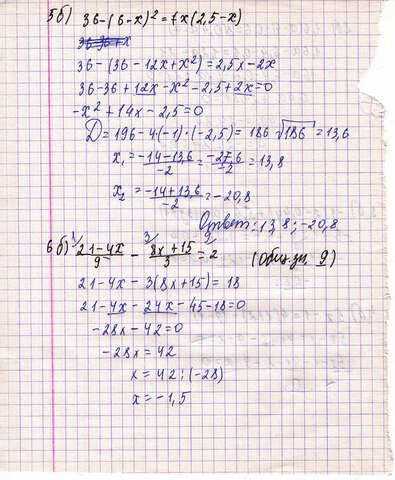 5б) 36-(6-x)² = x(2,5-x)
36-(36-12x+x²)=2,5x-2x
36-36+12x-x²-2,5+2x=0
-x²+14x-2,5=0
D=196-4(-1)·(-2,5)=186 √186=13,6
x₁=(-14-13,6)/-2=(-27,6)/-2=13,8
x₂=(-14+13,6)/-2=-20,8
Ответ: 13,8; -20,8
6б) (21-4x)/9 - (8x+15)/3=2 (Общ. зн. 9)
21-4x-3(8x+15)=18
21-4x-24x-45-18=0
-28x-42=0
-28x=42
x=42:(-28)
x=-1,5